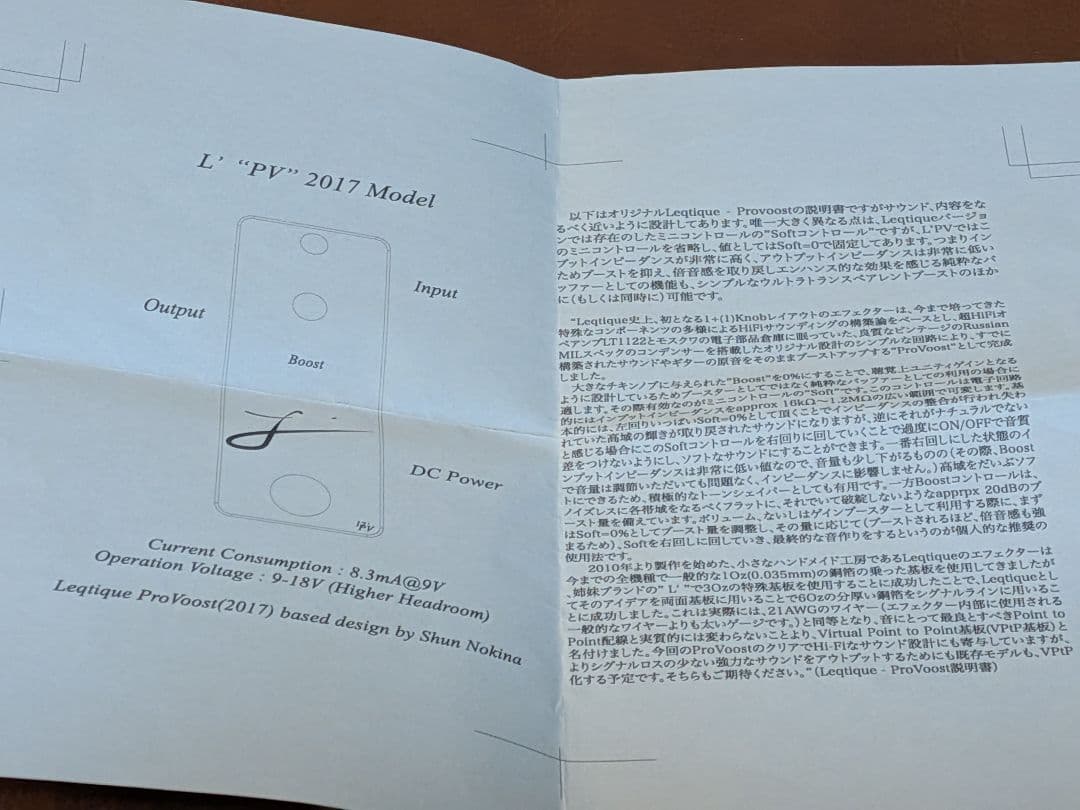 L' "PV" 2017 Model
Output
Input
Boost
DC Power
Current Consumption : 8.3mA@9V
Operation Voltage : 9-18V (Higher Headroom)
Leqtique ProVoost(2017) based design by Shun Nokina
以下はオリジナルLeqtique - Provoostの説明書ですがサウンド、内容をな
るべく近いように設計してあります。唯一大きく異なる点は、Leqtiqueバージョ
ンでは存在のしたミニコントロールの"Softコントロール"ですが、L'PVではこ
のミニコントロールを省略し、値としてはSoft=0で固定してあります。つまりイン
プットインピーダンスが非常に高く、アウトプットインピーダンスは非常に低い
ためブーストを抑え、倍音感を取り戻しエンハンス的な効果を感じる純粋なバ
ッファーとしての機能も、シンプルなウルトラトランスペアレントブーストのほか
に(もしくは同時に)可能です。
"Leqtique史上、初となる1+(1)Knobレイアウトのエフェクターは、今まで培ってきた
特殊なコンポーネンツの多様によるHiFiサウンディングの構築論をベースとし、超HiFiオ
ペアンプLT1122とモスクワの電子部品倉庫に眠っていた、良質なビンテージのRussian
MILスペックのコンデンサーを搭載したオリジナル設計のシンプルな回路により、すでに
構築されたサウンドやギターの原音をそのままブーストアップする"ProVoost"として完成
しました。
大きなチキンノブに与えられた"Boost"を0%にすることで、聴覚上ユニティゲインとなる
ように設計しているためブースターとしてではなく純粋なバッファーとしての利用の場合に
適します。その際有効なのがミニコントロールの"Soft"です。このコントロールは電子回路
的にはインプットインピーダンスをapprox 16kΩ〜1.2MΩの広い範囲で可変します。基
本的には、左回りいっぱいSoft=0%として頂くことでインピーダンスの整合が行われ失わ
れていた高域の輝きが取り戻されたサウンドになりますが、逆にそれがナチュラルでない
と感じる場合にこのSoftコントロールを右回りに回していくことで過度にON/OFFで音質
差をつけないようにし、ソフトなサウンドにすることができます。一番右回しにした状態のイ
ンプットインピーダンスは非常に低い値なので、音量も少し下がるものの(その際、Boost
で音量は調節いただいても問題なく、インピーダンスに影響しません。)高域をだいぶソフ
トにできるため、積極的なトーンシェイパーとしても有用です。一方Boostコントロールは、
ノイズレスに各帯域をなるべくフラットに、それでいて破綻しないようなapprpx 20dBのブ
ースト量を備えています。ボリューム、ないしはゲインブースターとして利用する際に、まず
はSoft=0%としてブースト量を調整し、その量に応じて(ブーストされるほど、倍音感も強
まるため)、Softを右回しに回していき、最終的な音作りをするというのが個人的な推奨の
使用法です。
2010年より製作を始めた、小さなハンドメイド工房であるLeqtiqueのエフェクターは
今までの全機種で一般的な1Oz(0.035mm)の銅箔の乗った基板を使用してきましたが
、姉妹ブランドの" L' "で3Ozの特殊基板を使用することに成功したことで、Leqtiqueとし
てそのアイデアを両面基板に用いることで6Ozの分厚い銅箔をシグナルラインに用いるこ
とに成功しました。これは実際には、21AWGのワイヤー(エフェクター内部に使用される
一般的なワイヤーよりも太いゲージです。)と同等となり、音にとって最良とすべきPoint to
Point配線と実質的には変わらないことより、Virtual Point to Point基板(VPtP基板)と
名付けました。今回のProVoostのクリアでHi-Fiなサウンド設計にも寄与していますが、
よりシグナルロスの少ない強力なサウンドをアウトプットするためにも既存モデルも、VPtP
化する予定です。そちらもご期待ください。"(Leqtique - ProVoost説明書)